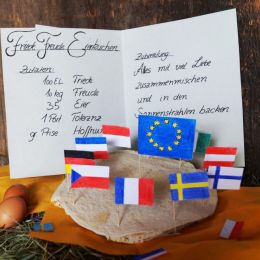 Friede Freude Eierkuchen
Zutaten:
100 EL Friede
10 kg Freude
35 Eier
1 Port Toleranz
gr Prise Hoffnung
Zubereitung:
Alles mit viel Liebe
zusammenmischen
und in den
Sonnenstrahlen backen